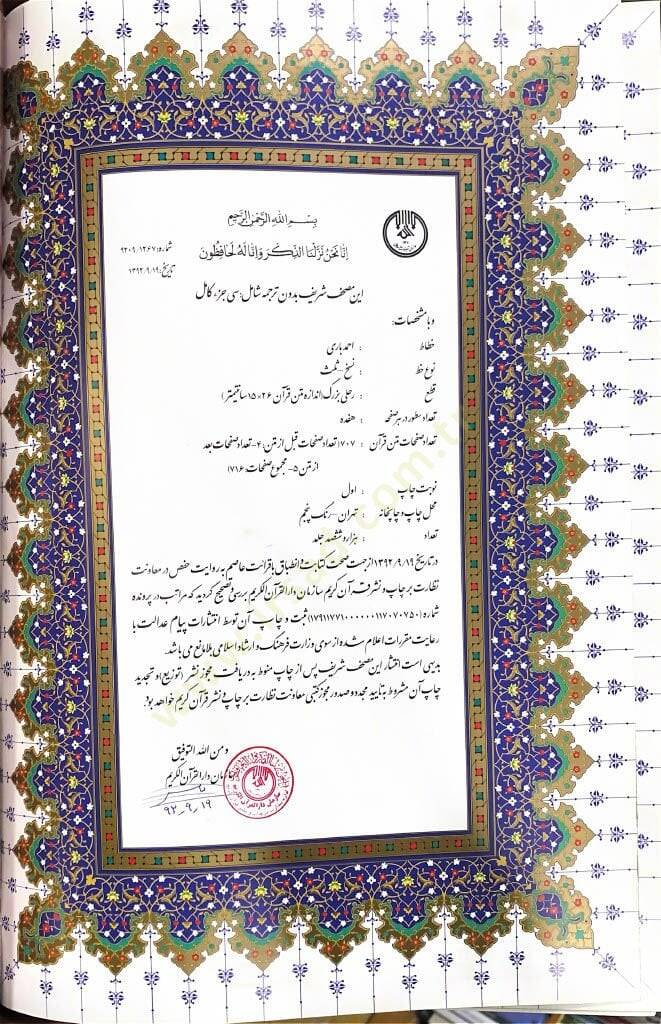 بِسْمِ اللّٰهِ الرَّحْمٰنِ الرَّحِيمِ
اِنّا نَحنُ نَزَّلنَا الذِّكرَ وَاِنّا لَهُ لَحافِظُون
شماره: ۹۲۰۹/۱۲۶۷
تاریخ: ۱۳۹۲/۹/۱۹
این مصحف شریف بدون ترجمه شامل: سی جزء کامل
و با مشخصات:
خطاط : احمد باری
نوع خط : نسخ - ثلث
قطع : رحلی بزرگ (اندازه متن قرآن ۲۶×۱۵ سانتیمتر)
تعداد سطور در هر صفحه : هفده
تعداد صفحات متن قرآن : ۷۰۷ (تعداد صفحات قبل از متن: ۴ - تعداد صفحات بعد
از متن ۵ - مجموع صفحات ۷۱۶)
نوبت چاپ : اول
محل چاپ و چاپخانه : تهران - رنگ پنجم
تعداد : هزار و ششصد جلد
در تاریخ ۱۳۹۲/۹/۱۹ از جهت صحت کتابت و انطباق با قرائت عاصم به روایت حفص در معاونت
نظارت بر چاپ و نشر قرآن کریم سازمان دارالقرآن الکریم بررسی و تصحیح گردید که مراتب در پرونده
شماره (۱۷۹۱۱۷۷۱۰۰۰۰۰۰۱۱۷۰۷۰۷۵۰) ثبت و چاپ آن توسط انتشارات پیام عدالت با
رعایت مقررات اعلام شده از سوی وزارت فرهنگ و ارشاد اسلامی بلامانع می باشد.
بدیهی است انتشار این مصحف شریف پس از چاپ منوط به دریافت مجوز نشر (توزیع) و تجدید
چاپ آن مشروط به تأیید مجدد و صدور مجوز کتبی معاونت نظارت بر چاپ و نشر قرآن کریم خواهد بود.
ومن الله التوفیق
سازمان دارالقرآن الکریم
۹۲,۹,۱۹